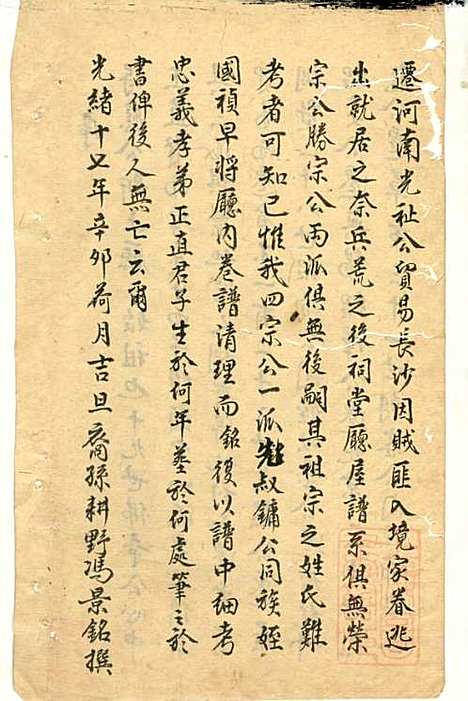 遷河南光祉公貿易長沙因賊匪入境家眷逃
出就居之奈兵荒之後祠堂廳屋譜系俱無榮
宗公勝宗公兩派俱無後嗣其祖宗之姓氏難
考者可知已惟我四宗公一派彪叔鏞公同族姪
國禎早將廳内卷譜清理而銘復以譜中細考
忠義孝弟正直君子生於何年墓於何處筆之於
書俾後人無亡云爾
光緒十七年辛卯荷月吉旦裔孫耕野馮景銘撰